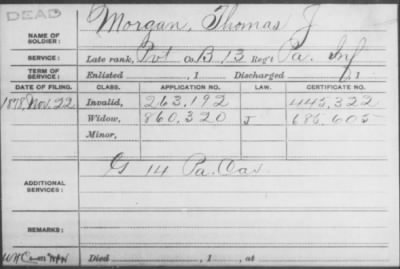 DEAD
NAME OF SOLDIER: Morgan, Thomas J
SERVICE: Late rank, Pvt Co. B, 13 Reg't Pa. Inf
TERM OF SERVICE: Enlisted , 1 Discharged , 1
DATE OF FILING. CLASS. APPLICATION NO. LAW. CERTIFICATE NO.
1878, Nov. 22 Invalid, 263,192 445,322
Widow, 860,320 J 686,605
Minor,
ADDITIONAL SERVICES: G 14 Pa. Cav.
REMARKS:
Died , 1 , at